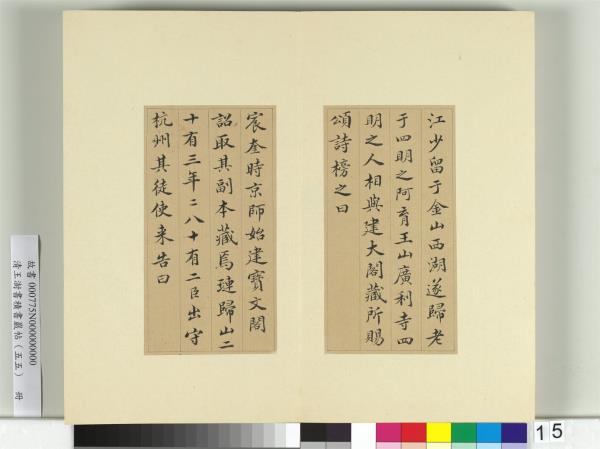 江少留于金山西湖遂歸老
于四明之阿育王山廣利寺四
明之人相與建大閣藏所賜
頌詩榜之曰
宸奎時京師始建寶文閣
詔取其副本藏焉璉歸山二
十有三年二八十有三臣出守
杭州其徒使来告曰
故書 000775N000000000
清王澍書積書巖帖（五五） 冊
15